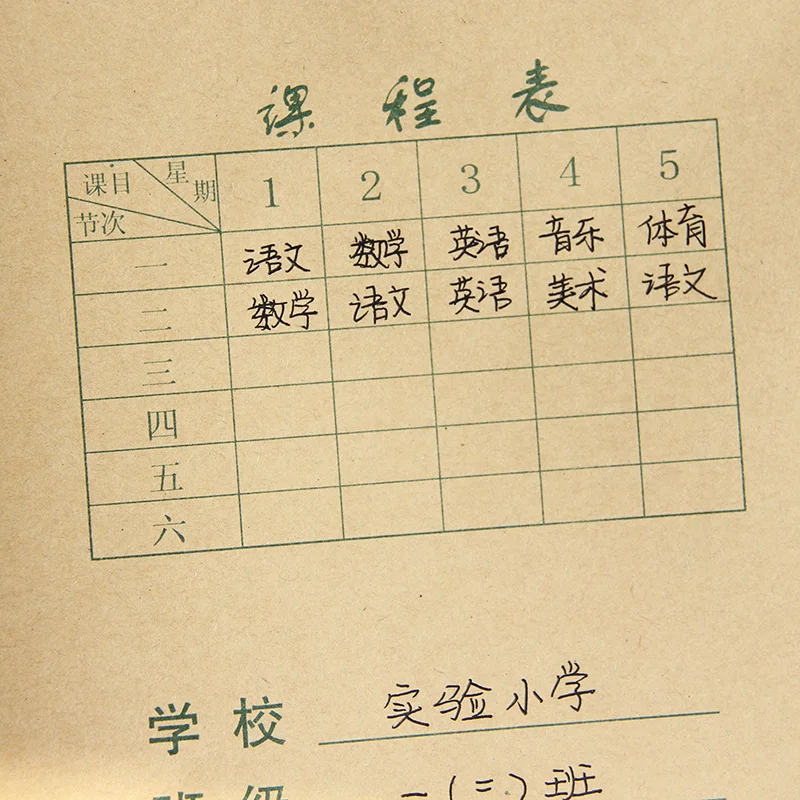 课 程 表
课目 星期 节次 1 2 3 4 5
一 语文 数学 英语 音乐 体育
二 数学 语文 英语 美术 语文
三
四
五
六
学 校 实验小学
班 级 一(二)班